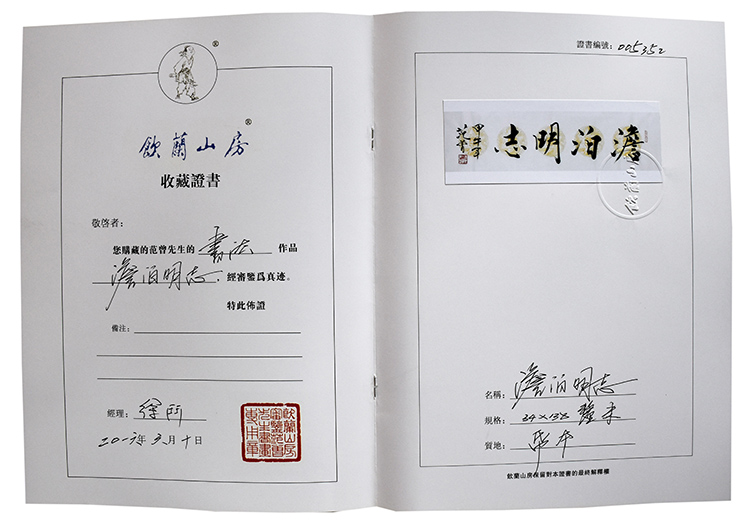 飲蘭山房
®
收藏證書
敬啓者：
您購藏的范曾先生的 書法 作品
澹泊明志，經審鑒爲真迹。
特此佈證
備注：
經理：
二〇一六年三月十日
飲蘭山房
證書编號：005352
澹泊明志
甲午年
范曾
飲蘭山
名稱：澹泊明志
規格：34×138 釐米
質地：紙本
飲蘭山房保留對本證書的最終解釋權